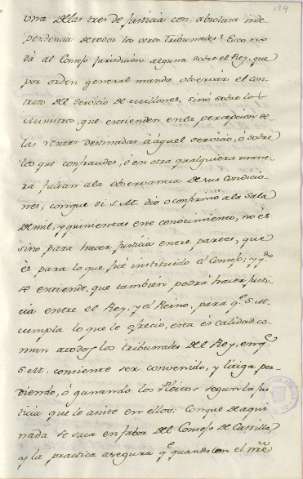 una de las tres de Justicia con absoluta inde
pendencia de todos los otros Tribunales. Esto no
dá al Consejo jurisdicion alguna sobre el Rey, que
por orden general manda observar el con
trato del servicio de millones, sino sobre los
Ministros, que entienden en la percepcion de
las rentas destinadas á aquel servicio, ó sobre
los que con fraudes, ó en otra qualquiera mane
ra faltan á la observancia de sus condicio
nes, conque si S.M. dió ó confirmó á la Sala
de mil, y quinientas este conocimiento, no és
sino para hacer justicia entre partes, que
és para lo que fué instituido el Consejo; y
se entiende, que tambien podrá hacer justi
cia entre el Rey, y el Reino, para qᵉ S.M.
cumpla lo que le ofreció, esta és calidad co
mun á todos los tribunales del Rey, en qᵉ
S.M. consiente ser convenido, y litiga per
diendo, ó ganando los Pleitos segun la jus
ticia que le asiste en ellos. Conque de aqui
nada se saca en fabor del Consejo de Castilla,
y la practica asegura qᵉ quando con el